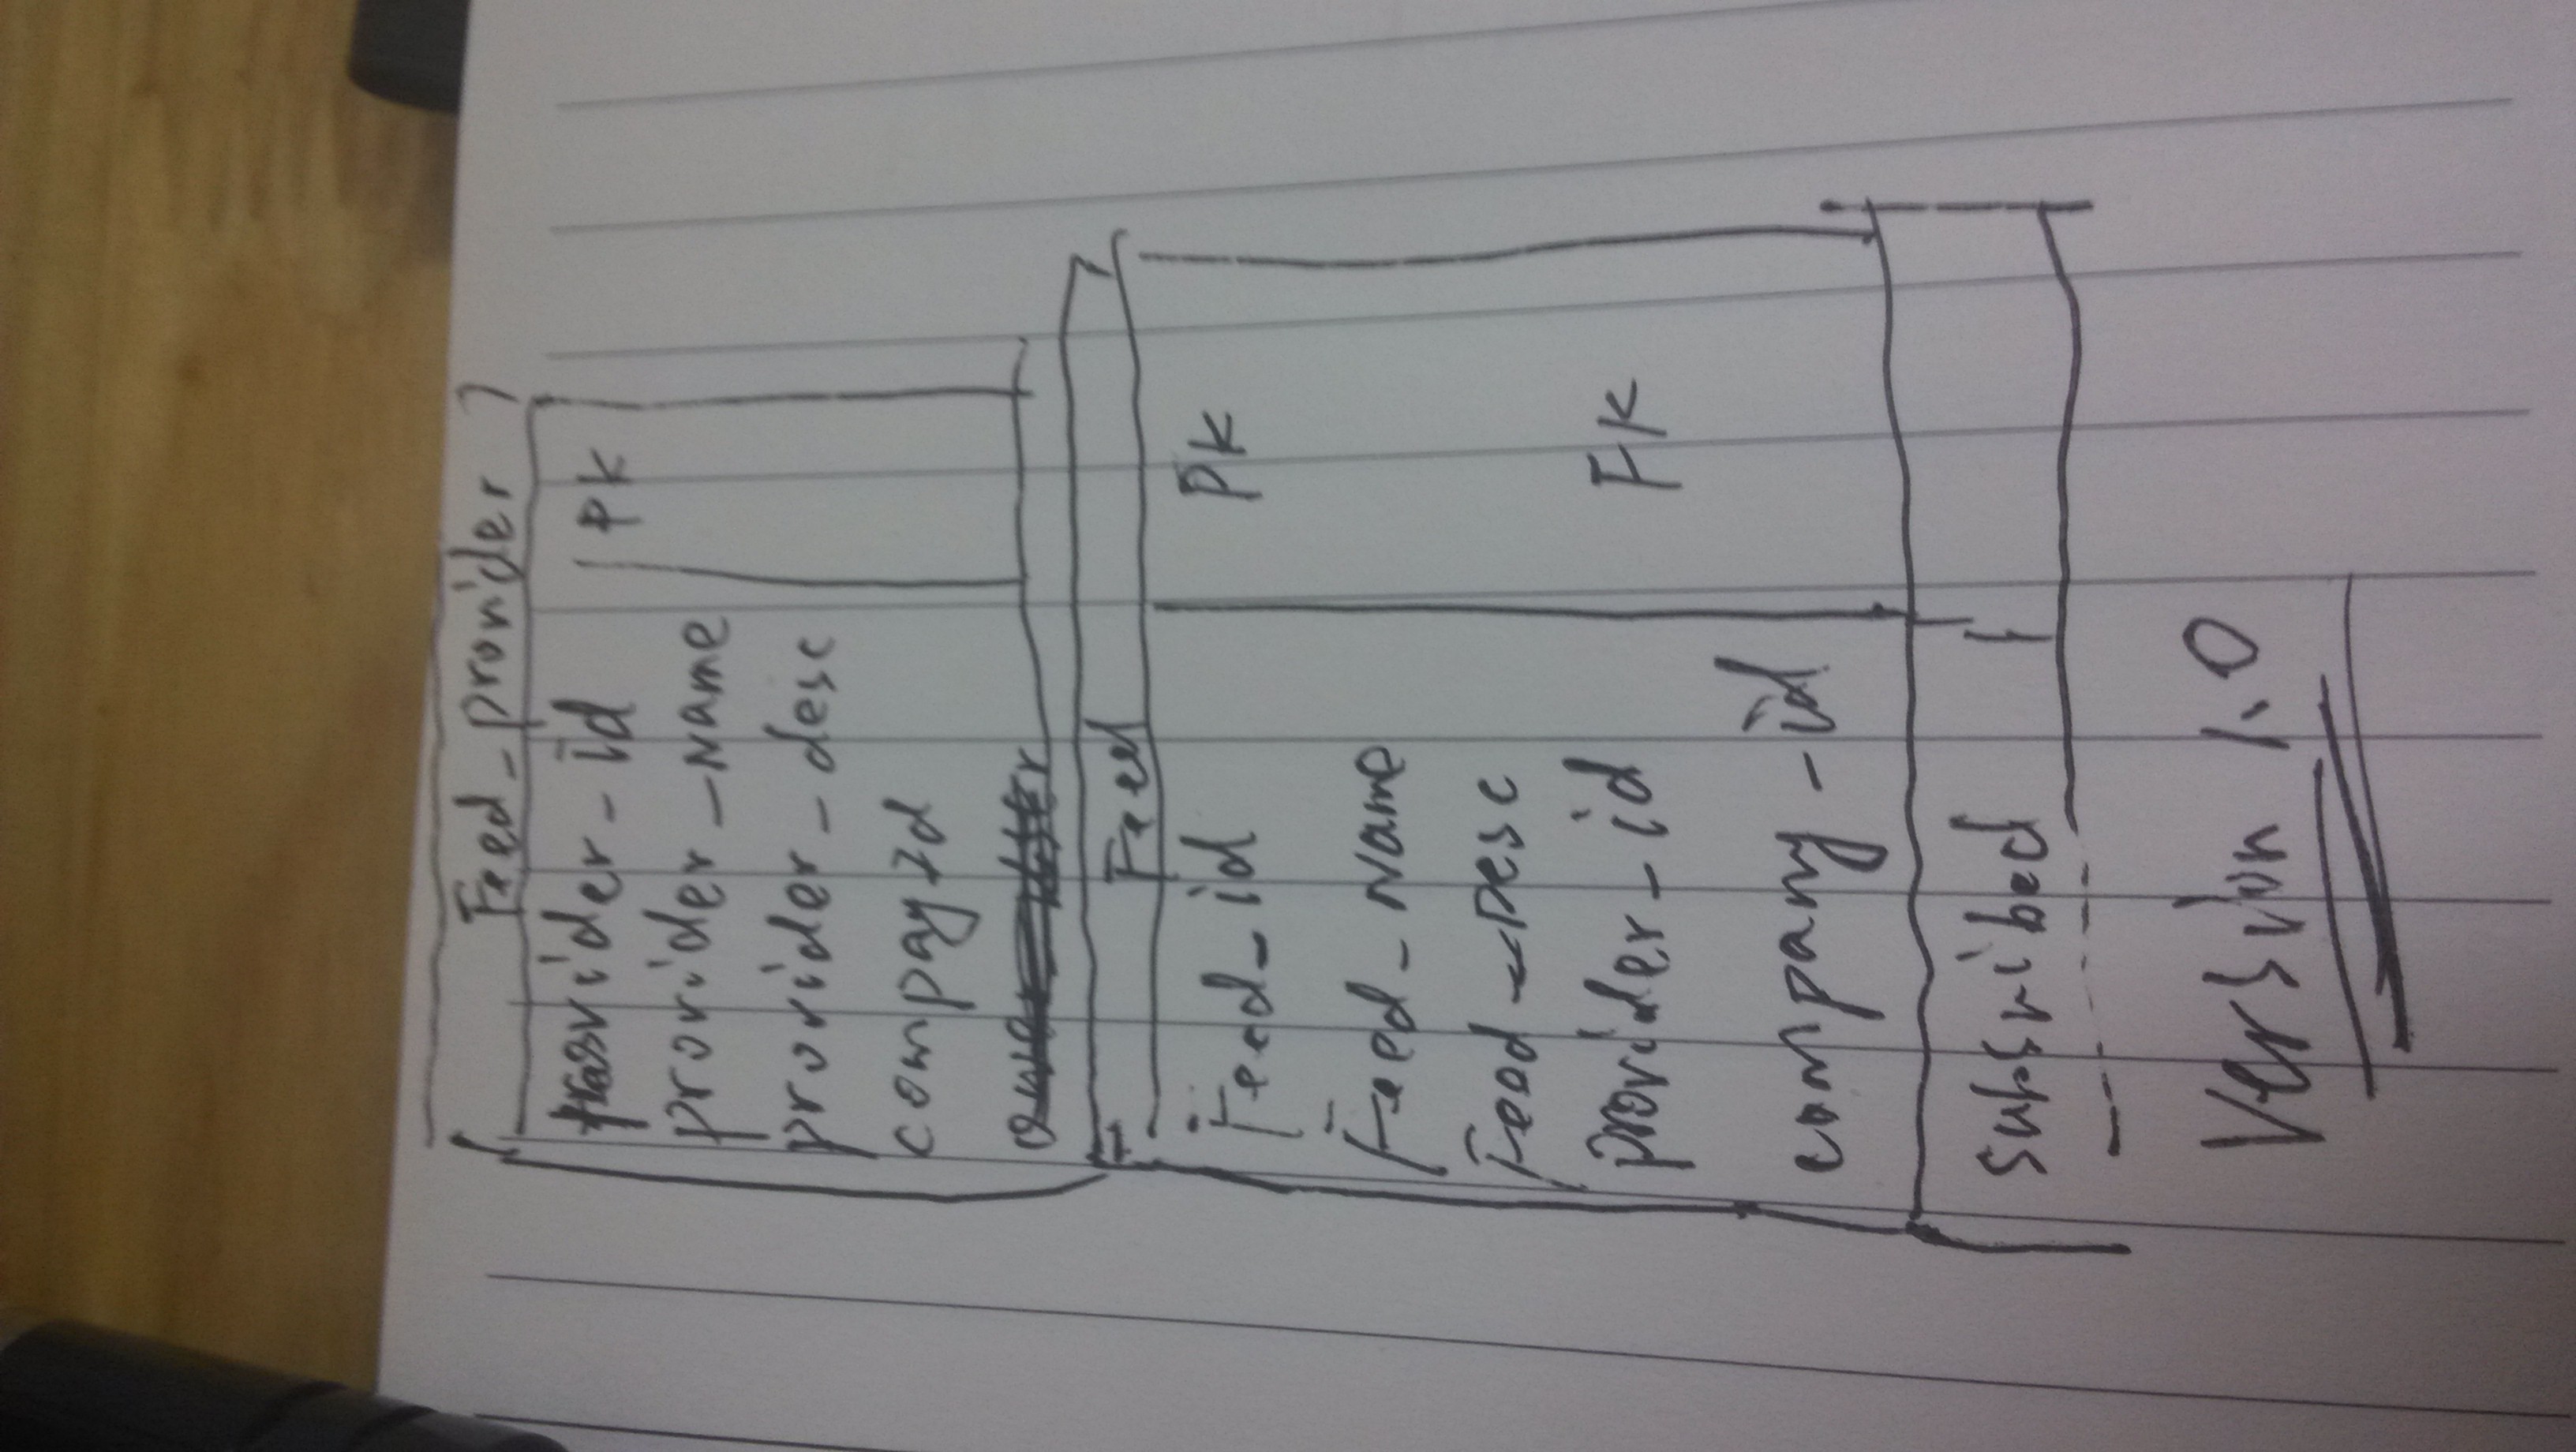 Feed_provider
provider_id PK
provider_Name
provider_desc
compay Id
Feed
Feed_id PK
Feed_Name
Feed_Desc
provider_id FK
company_id
subsribed
Version 1.0